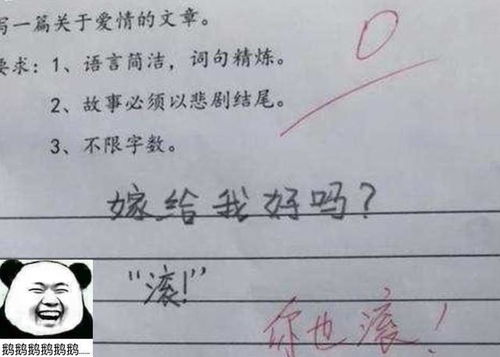 写一篇关于爱情的文章。
0
要求：1、语言简洁，词句精炼。
2、故事必须以悲剧结尾。
3、不限字数。
嫁给我好吗？
“滚！”
你也滚！
鹅鹅鹅鹅鹅鹅